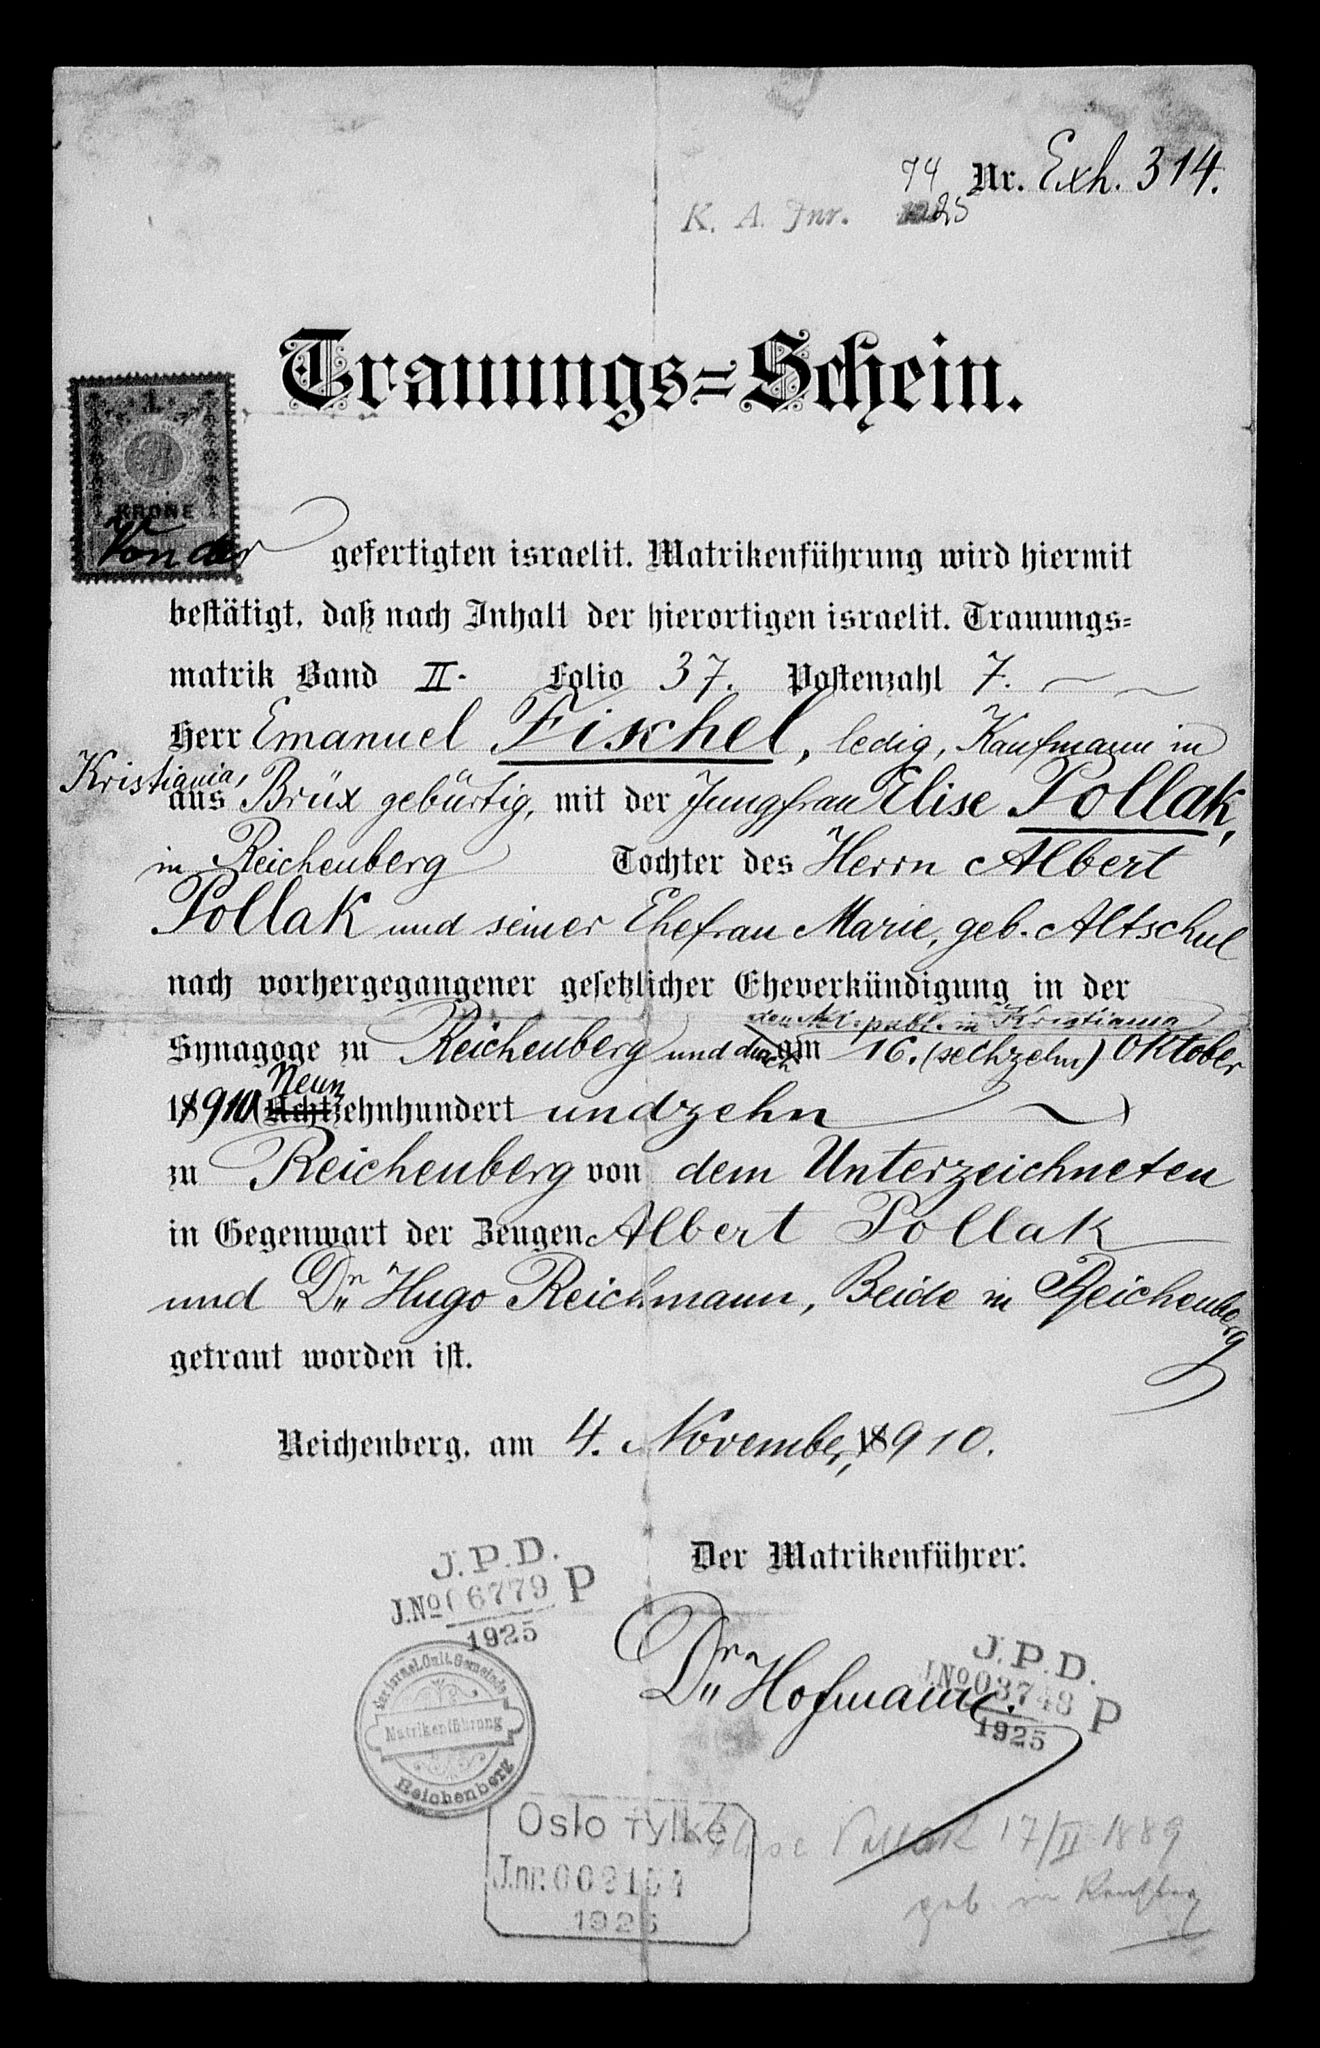 74 Nr. Exh. 314.
K. A. Jnr. 1925
Trauungs=Schein.
1
KRONE
Von der gefertigten israelit. Matrikenführung wird hiermit
bestätigt, daß nach Inhalt der hierortigen israelit. Trauungs=
matrik Band II. Folio 37. Postenzahl 7.
Herr Emanuel Fischel, ledig, Kaufmann in
Kristiania,
aus Brüx gebürtig, mit der Jungfrau Elise Pollak,
in Reichenberg Tochter des Herrn Albert
Pollak und seiner Ehefrau Marie, geb. Altschul
nach vorhergegangener gesetzlicher Eheverkündigung in der
publ. in Kristiania
Synagoge zu Reichenberg und durch am 16. (sechzehn) Oktober
Neun
18910 (Achtzehnhundert undzehn )
zu Reichenberg von dem Unterzeichneten
in Gegenwart der Zeugen Albert Pollak
und Dr. Hugo Reichmann, Beide in Reichenberg
getraut worden ist.
Reichenberg, am 4. November, 18910.
Der Matrikenführer:
Dr. Hofmann.
J.P.D.
J.No 06779 P
1925
J.P.D.
J.No 03748 P
1925
der israel. Cult. Gemeinde
Matrikenführung
Reichenberg
Oslo fylke
J.nr. 002154
1925
Elise Pollak 17/II 1889
geb. in